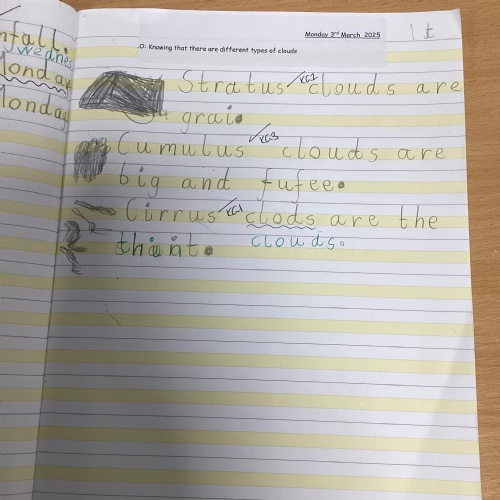 nfall.
wednes
Monday
Monday
Monday 3rd March 2025
1t
.O: Knowing that there are different types of clouds
Stratus KG2 clouds are
grai.
Cumulus KG3 clouds are
big and fufee.
Cirrus KG1 clods are the
clouds.